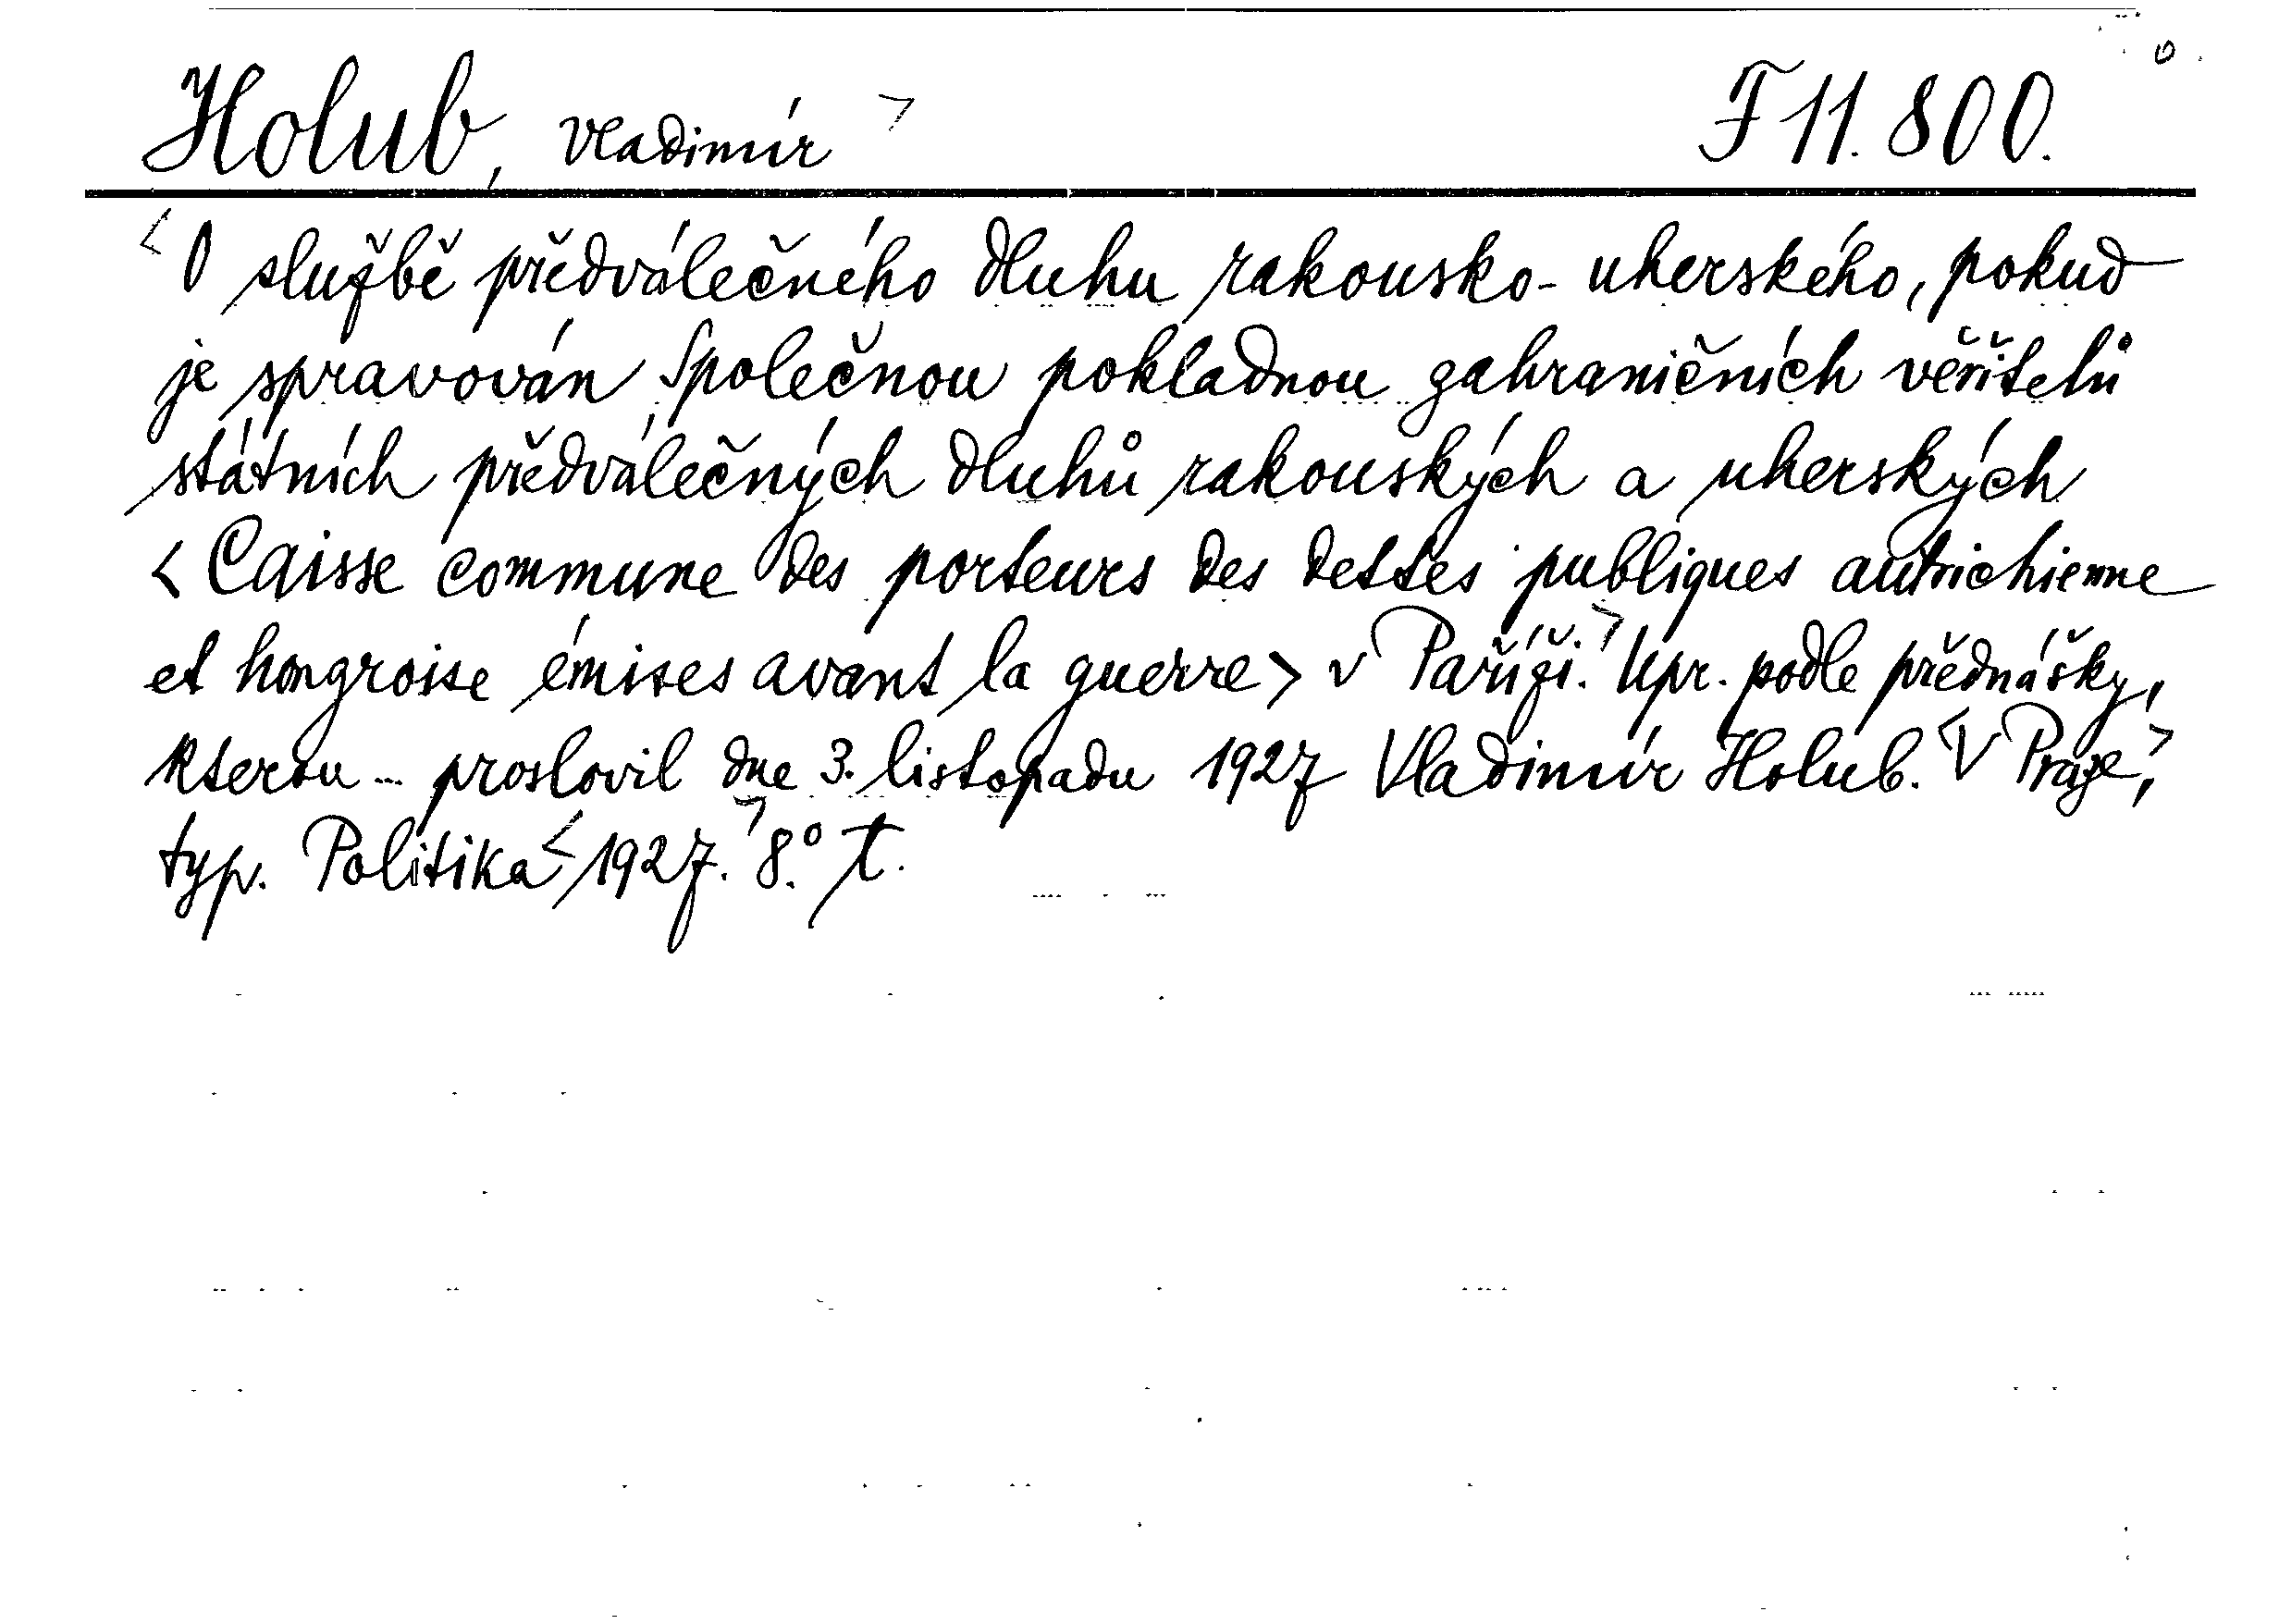 Holub, Vladimír > F 11.800.
< O službě předválečného dluhu rakousko-uherského, pokud
je spravován Společnou pokladnou zahraničních věřitelů
státních předválečných dluhů rakouských a uherských
< Caisse commune des porteurs des dettes publiques autrichienne
et hongroise émises avant la guerre > v Paříži. > Upr. podle přednášky,
kterou ... proslovil dne 3. listopadu 1927 Vladimír Holub. < V Praze, >
typ. Politika < 1927. > 8.° T.